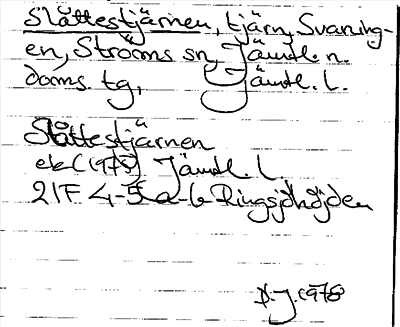 Slåttestjärnen, tjärn, Svaning-
en, Ströms sn, Jämtl. n.
doms. tg, Jämtl. l.
Slåttestjärnen
ek (1975) Jämtl. l.
21F 4-5 a-b Ringsjöhöjden
D. J. 1978